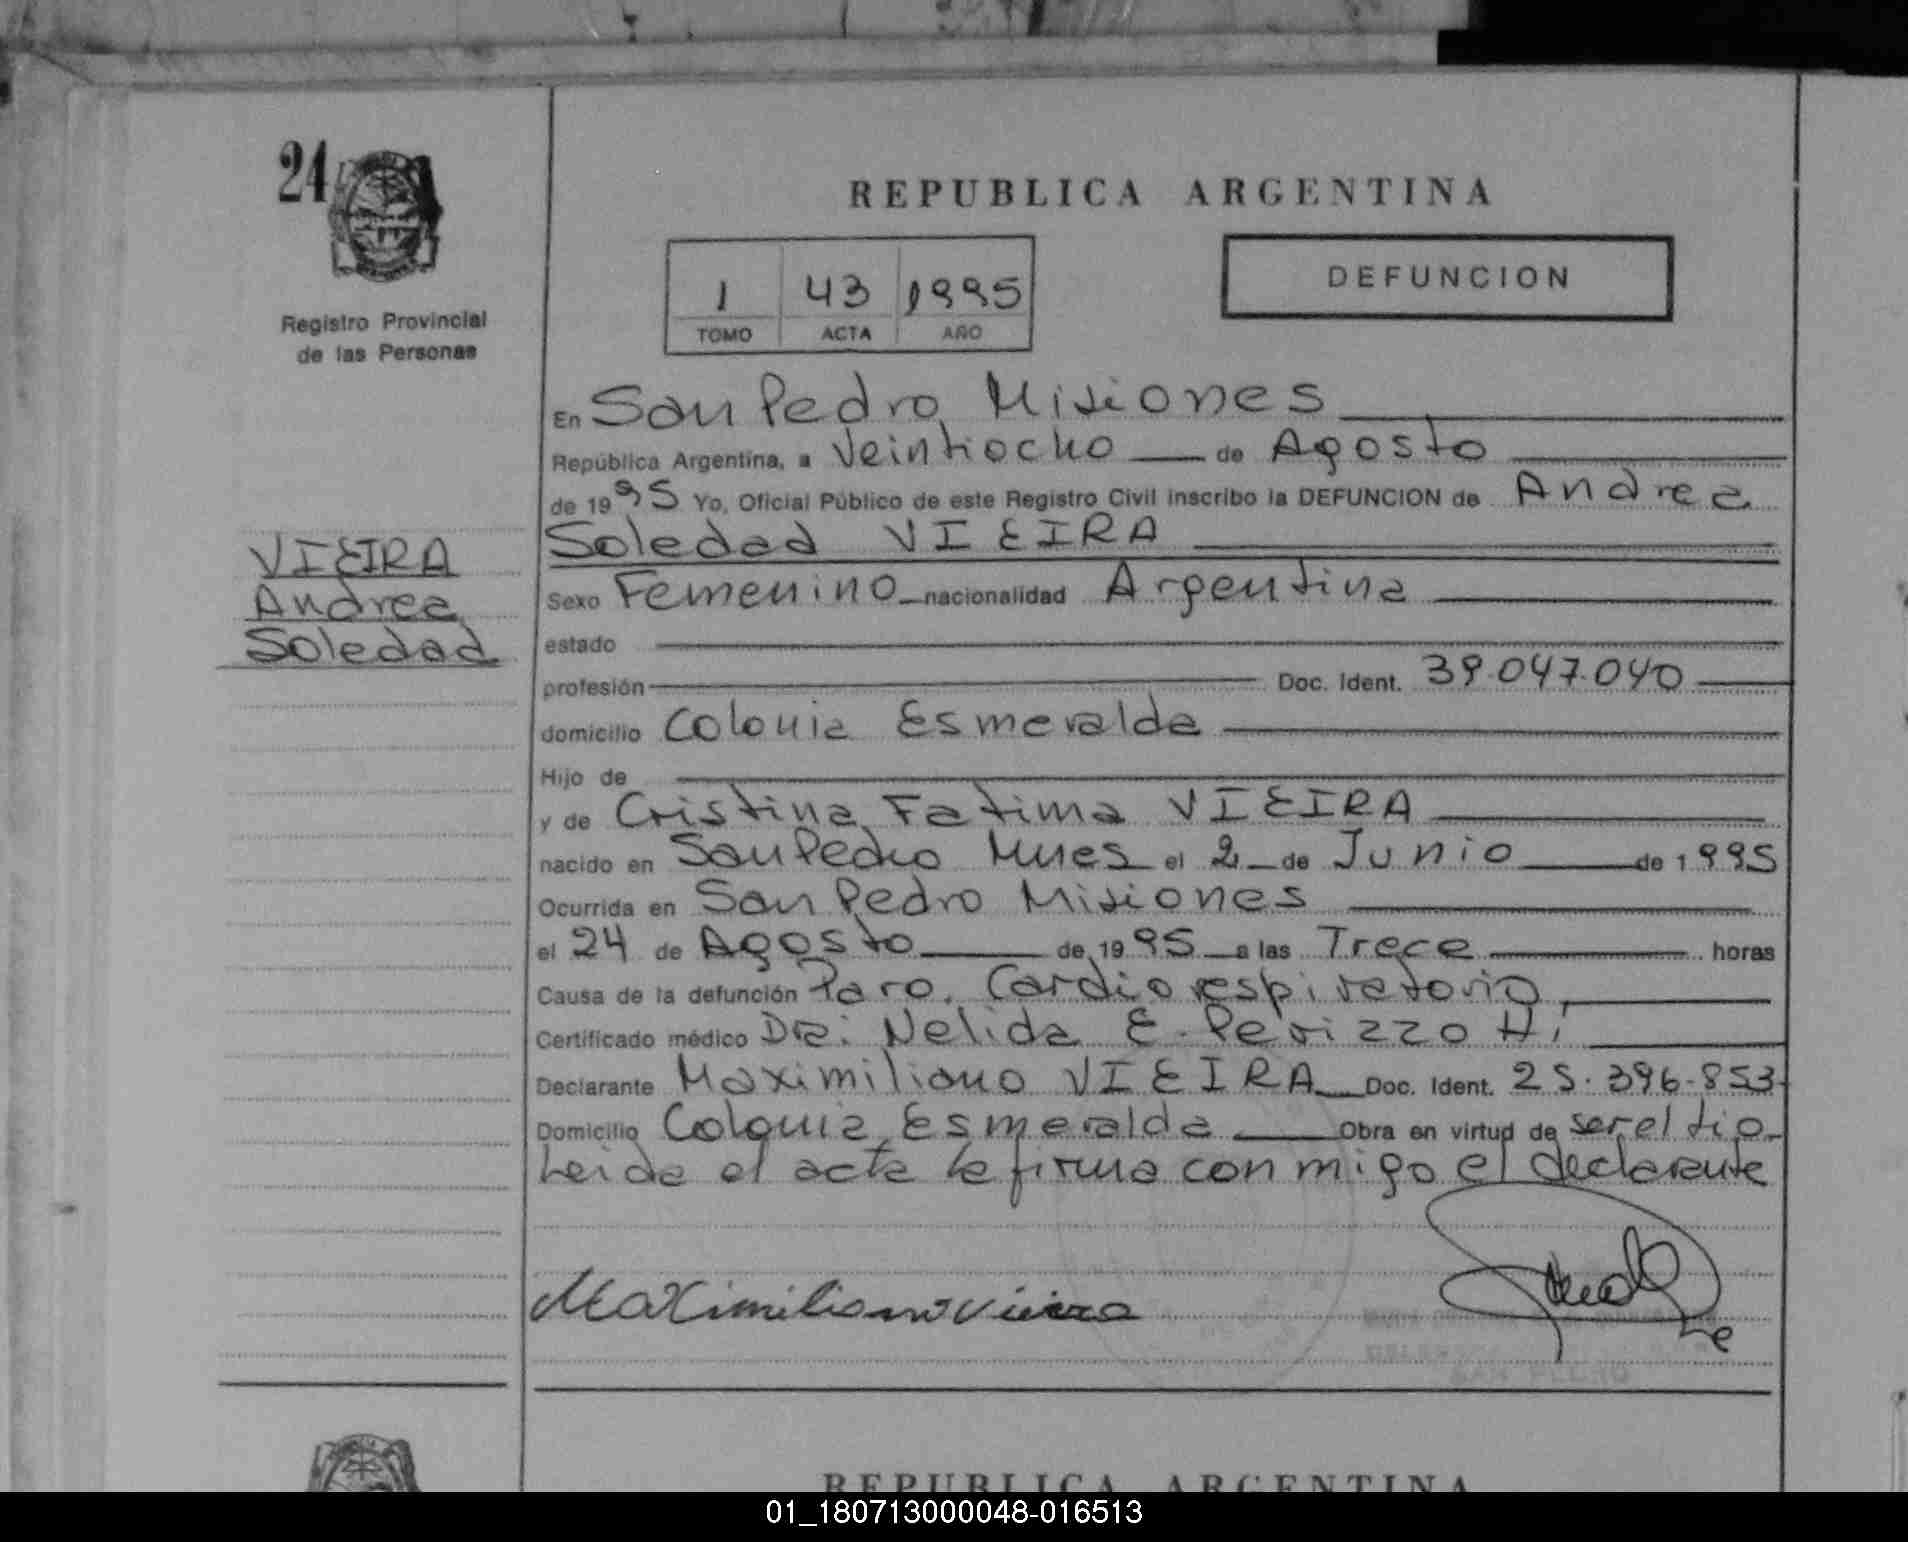 24
Registro Provincial
de las Personas
REPUBLICA ARGENTINA
1 43 1995
TOMO ACTA AÑO
DEFUNCION
En San Pedro Misiones
República Argentina, a Veintiocho de Agosto
de 1995 Yo, Oficial Público de este Registro Civil inscribo la DEFUNCION de Andrea
Soledad VIEIRA
VIEIRA
Andrea
Soledad
Sexo Femenino nacionalidad Argentina
estado
profesión Doc. Ident. 39.047.040
domicilio Colonia Esmeralda
Hijo de
y de Cristina Fatima VIEIRA
nacido en San Pedro Mnes el 2 de Junio de 1995
Ocurrida en San Pedro Misiones
el 24 de Agosto de 1995 a las Trece horas
Causa de la defunción Paro. Cardio respiratorio
Certificado médico Dra: Nelida E. Perizzo
Declarante Maximiliano VIEIRA Doc. Ident. 25.396.853
Domicilio Colonia Esmeralda Obra en virtud de ser el tio
Leida el acta la firma con migo el declarante
Maximiliano Vieira
SAN PEDRO
REPUBLICA ARGENTINA
01_180713000048-016513